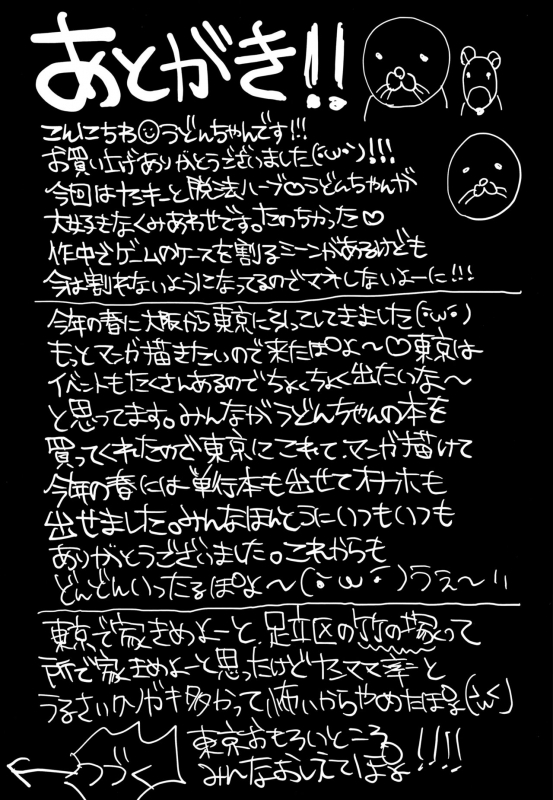 あとがき!!
こんにちわ うどんちゃんです!!!
お買い上げありがとうございました(´・ω・`)!!!
今回はヤンキーと脱法ハーブ♡うどんちゃんが
大好きなくみあわせです。たのちかった♡
作中でゲームのケースを割るシーンがあるけども
今は割れないようになってるのでマネしないよーに!!!
今年の春に大阪から東京に引っこしてきました(´・ω・`)
もっとマンガ描きたいので来たぽよ〜♡東京は
イベントもたくさんあるのでちょくちょく出たいな〜
と思ってます。みんながうどんちゃんの本を
買ってくれたので東京にこれて、マンガ描けて
今年の春には単行本も出せてオナホも
出せました。みんなほんとうにいつもいつも
ありがとうございました。これからも
どんどんいったるぽよ〜(´・ω・`)うぇ〜い
東京で家きめよーと、足立区の竹の塚って
所で家きめよーと思ったけどヤンママ率と
うるさいクソガキ多かって怖いからやめたぽよ(´・ω・`)
東京おもろいところ
みんなおしえてぽよ!!!!
つづく